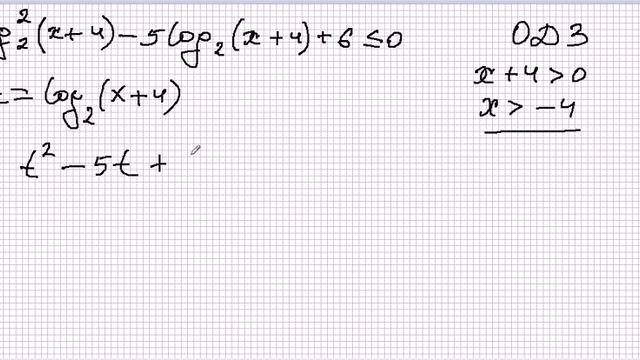 og₂²(x+4) − 5log₂(x+4) + 6 ≤ 0
t = log₂(x+4)
t² − 5t +
ОДЗ
x + 4 > 0
x > −4